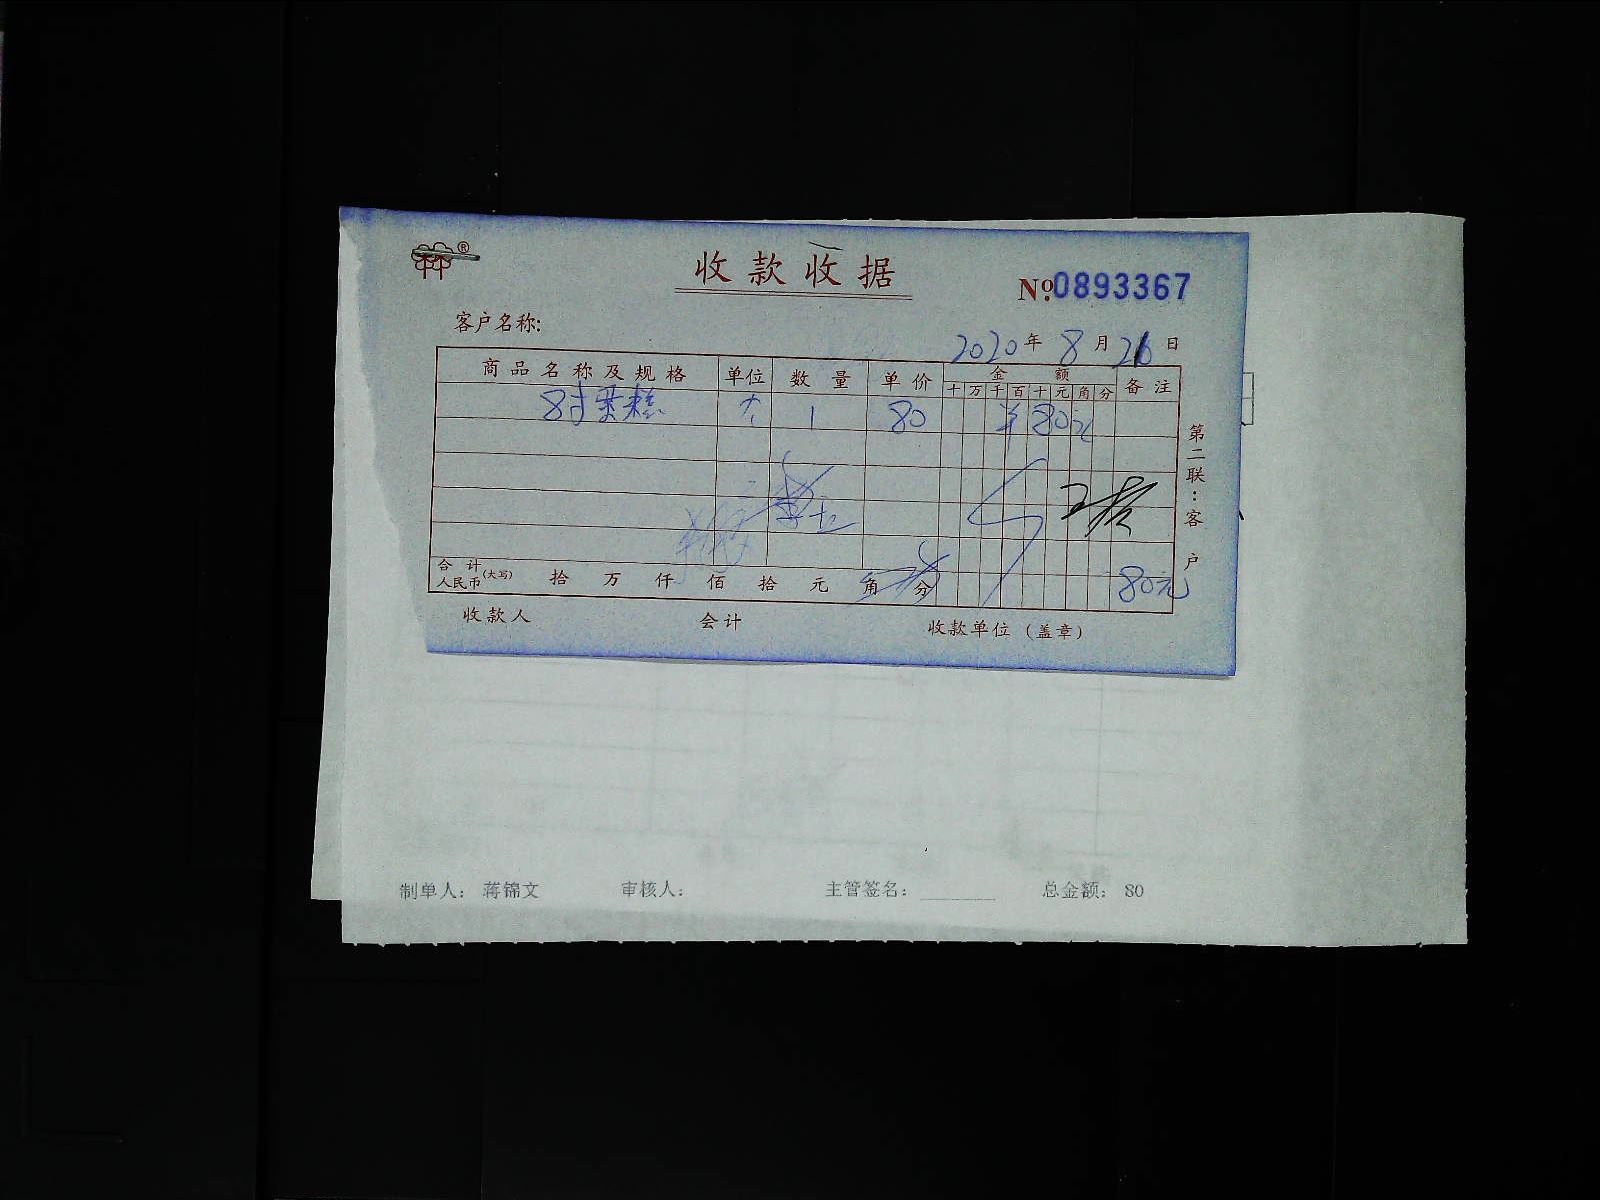 ®
收款收据
№0893367
客户名称:
2020年8月26日
商品名称及规格 单位 数量 单价 金额 备注
十万千百十元角分
8寸蛋糕 个 1 80 ¥80元
第二联:客户
合计人民币(大写) 拾 万 仟 佰 拾 元 角 分 80元
收款人 会计 收款单位(盖章)
制单人: 蒋锦文 审核人: 主管签名: 总金额: 80